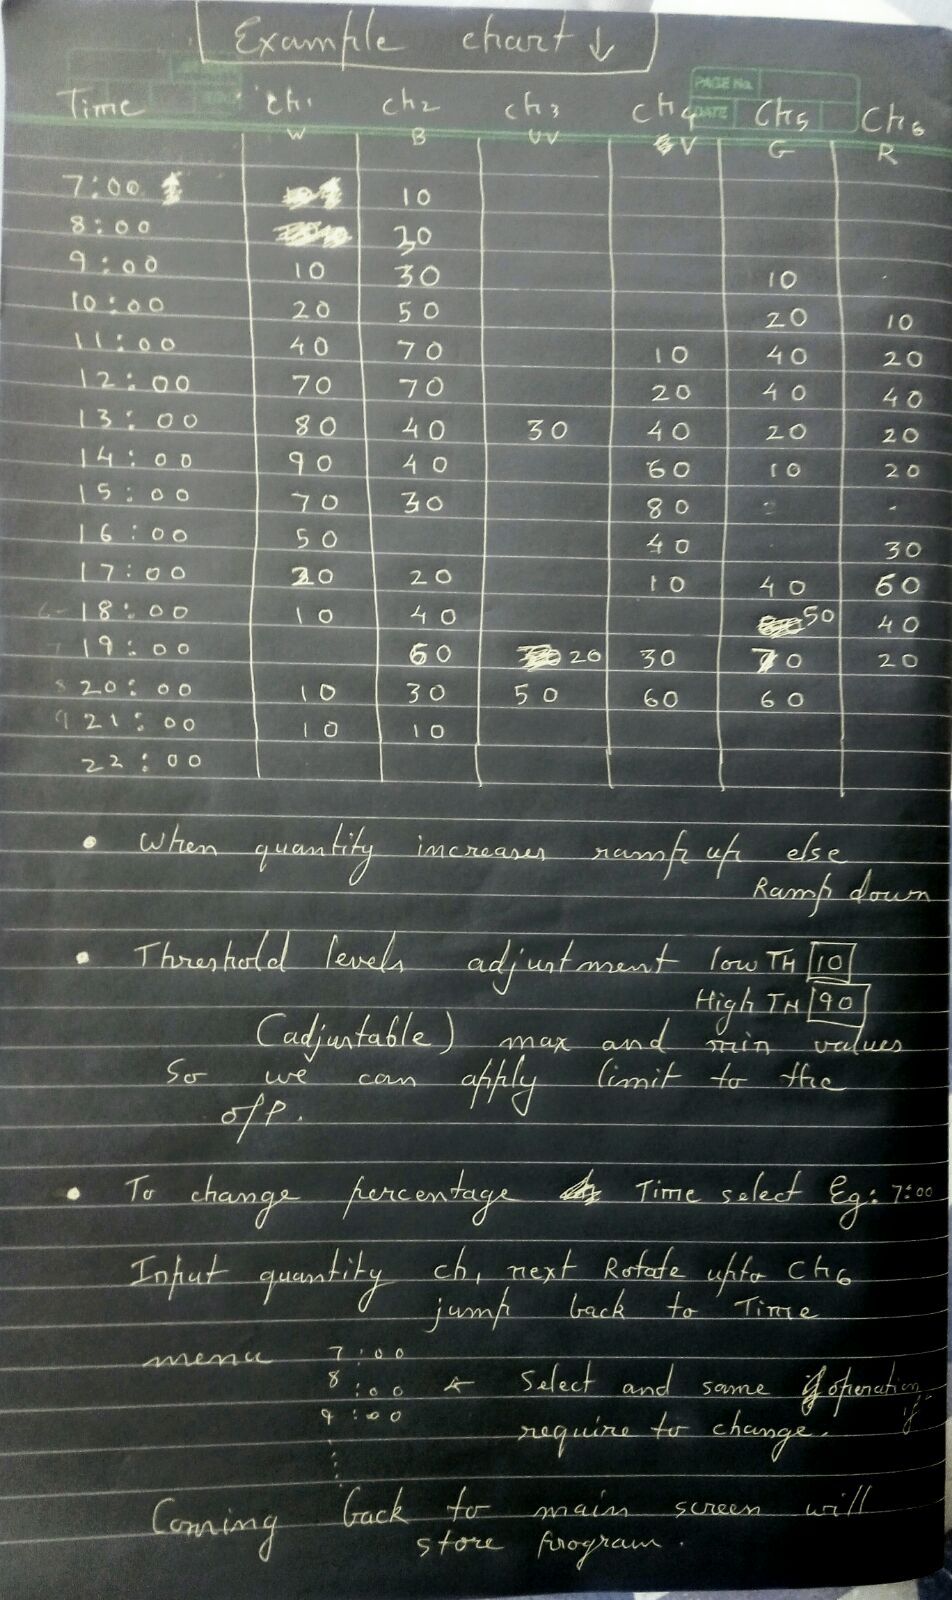 Example chart ↓
PAGE No.
DATE
Time Ch1 Ch2 Ch3 Ch4 Ch5 Ch6
W B UV V G R
7:00 10
8:00 30
9:00 10 30 10
10:00 20 50 20 10
11:00 40 70 10 40 20
12:00 70 70 20 40 40
13:00 80 40 30 40 20 20
14:00 90 40 60 10 20
15:00 70 30 80
16:00 50 40 30
17:00 20 20 10 40 60
18:00 10 40 50 40
19:00 60 20 30 70 20
8 20:00 10 30 50 60 60
9 21:00 10 10
22:00
• When quantity increases ramp up else
Ramp down
• Threshold levels adjustment low TH 10
High TH 90
(adjustable) max and min values
So we can apply limit to the
o/p.
• To change percentage Time select Eg: 7:00
Input quantity ch1 next Rotate upto Ch6
jump back to Time
menu 7:00
8:00 ← Select and same operation if
9:00 require to change.
Coming back to main screen will
store program.